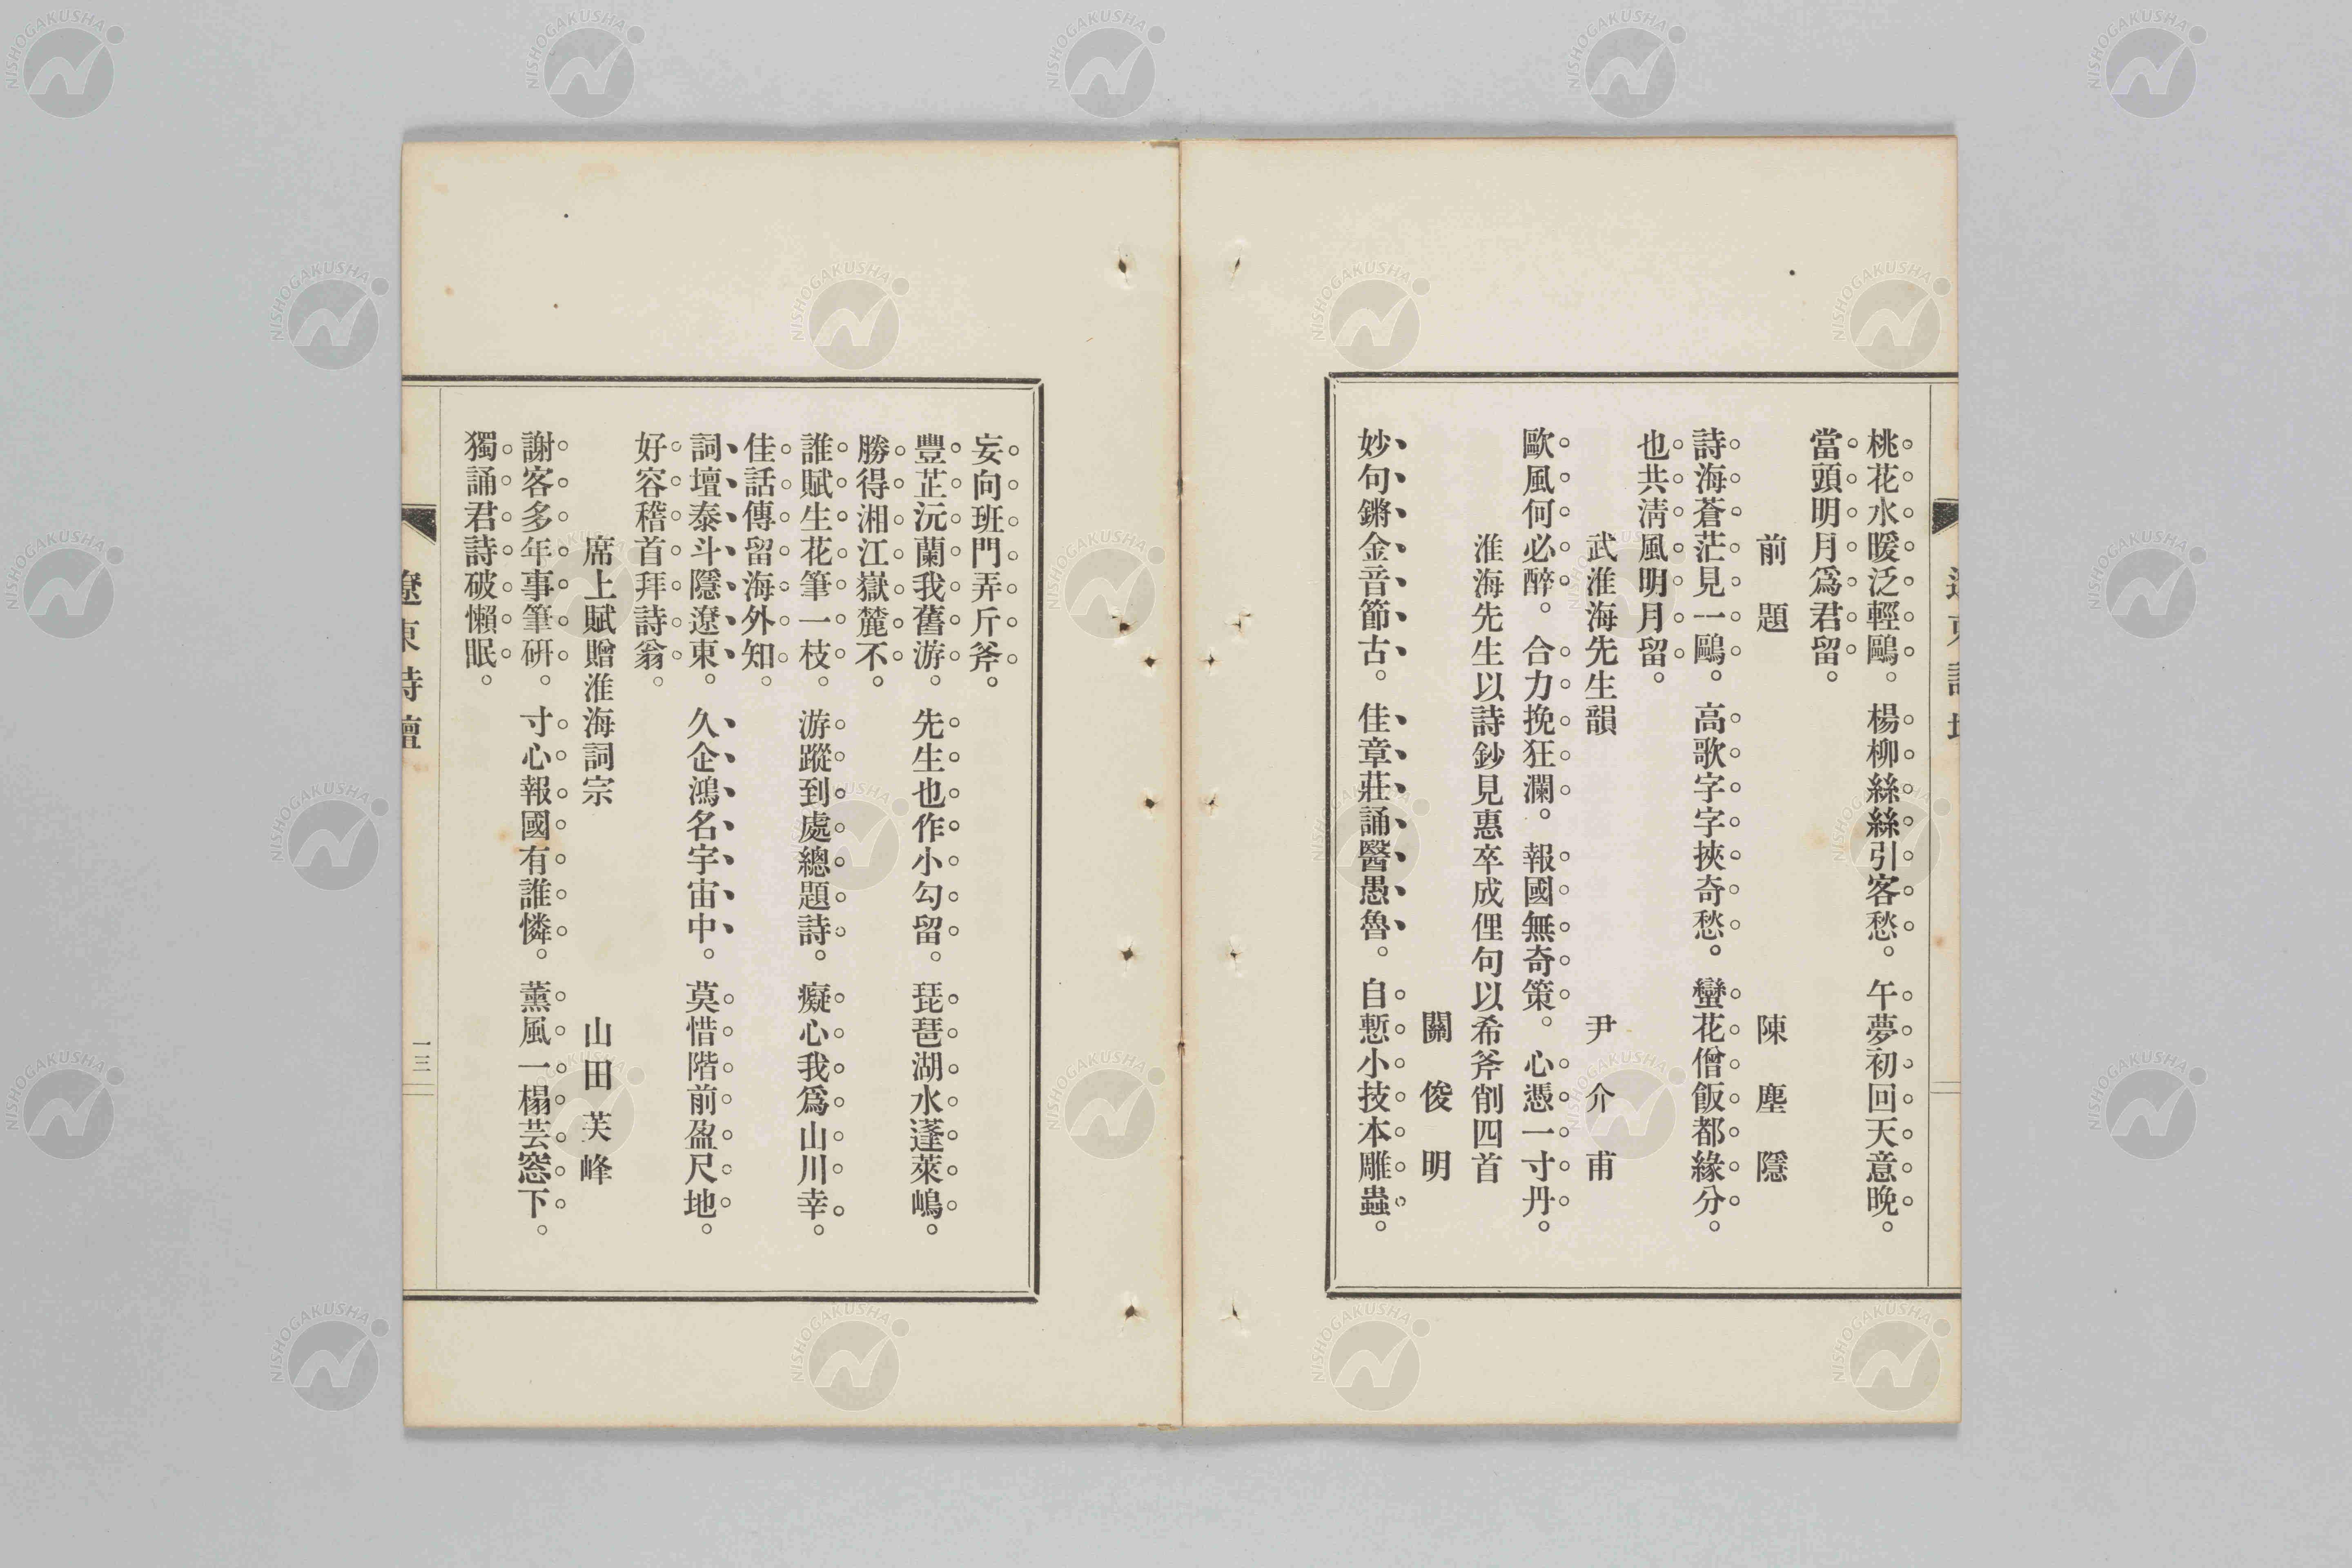 桃花水暖泛輕鷗。楊柳絲絲引客愁。午夢初回天意晚。
當頭明月爲君留。
前題 陳塵隱
詩海蒼茫見一鷗。高歌字字挾奇愁。蠻花僧飯都緣分。
也共淸風明月留。
武淮海先生韻 尹介甫
歐風何必醉。合力挽狂瀾。報國無奇策。心憑一寸丹。
淮海先生以詩鈔見惠卒成俚句以希斧削四首
關俊明
妙句鏘金音節古。佳章莊誦醫愚魯。自慙小技本雕蟲。
妄向班門弄斤斧。
豐芷沅蘭我舊游。先生也作小勾留。琵琶湖水蓬萊嶋。
勝得湘江嶽麓不。
誰賦生花筆一枝。游蹤到處總題詩。癡心我爲山川幸。
佳話傳留海外知。
詞壇泰斗隱遼東。久企鴻名宇宙中。莫惜階前盈尺地。
好容稽首拜詩翁。
席上賦贈淮海詞宗 山田芙峰
謝客多年事筆硏。寸心報國有誰憐。薰風一榻芸窓下。
獨誦君詩破懶眠。
遼東詩壇
一三
NISHOGAKUSHA